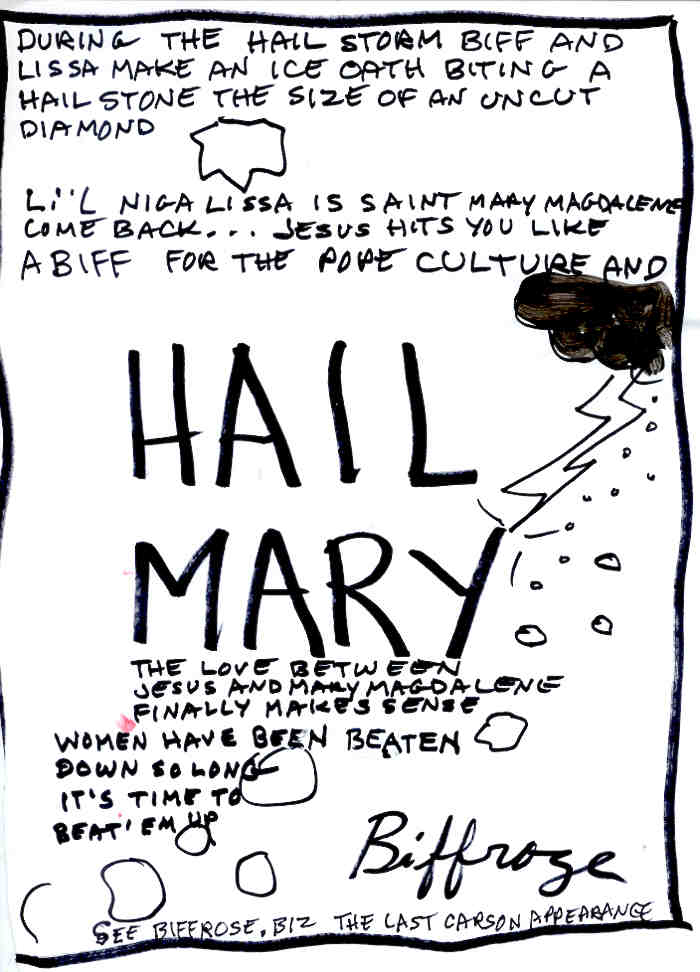 DURING THE HAIL STORM BIFF AND
LISSA MAKE AN ICE OATH BITING A
HAIL STONE THE SIZE OF AN UNCUT
DIAMOND
LI'L NIGA LISSA IS SAINT MARY MAGDALENE
COME BACK... JESUS HITS YOU LIKE
A BIFF FOR THE POPE CULTURE AND
HAIL
MARY
THE LOVE BETWEEN
JESUS AND MARY MAGDALENE
FINALLY MAKES SENSE
WOMEN HAVE BEEN BEATEN
DOWN SO LONG
IT'S TIME TO
BEAT 'EM UP
Biffroze
SEE BIFFROSE.BIZ THE LAST CARSON APPEARANCE